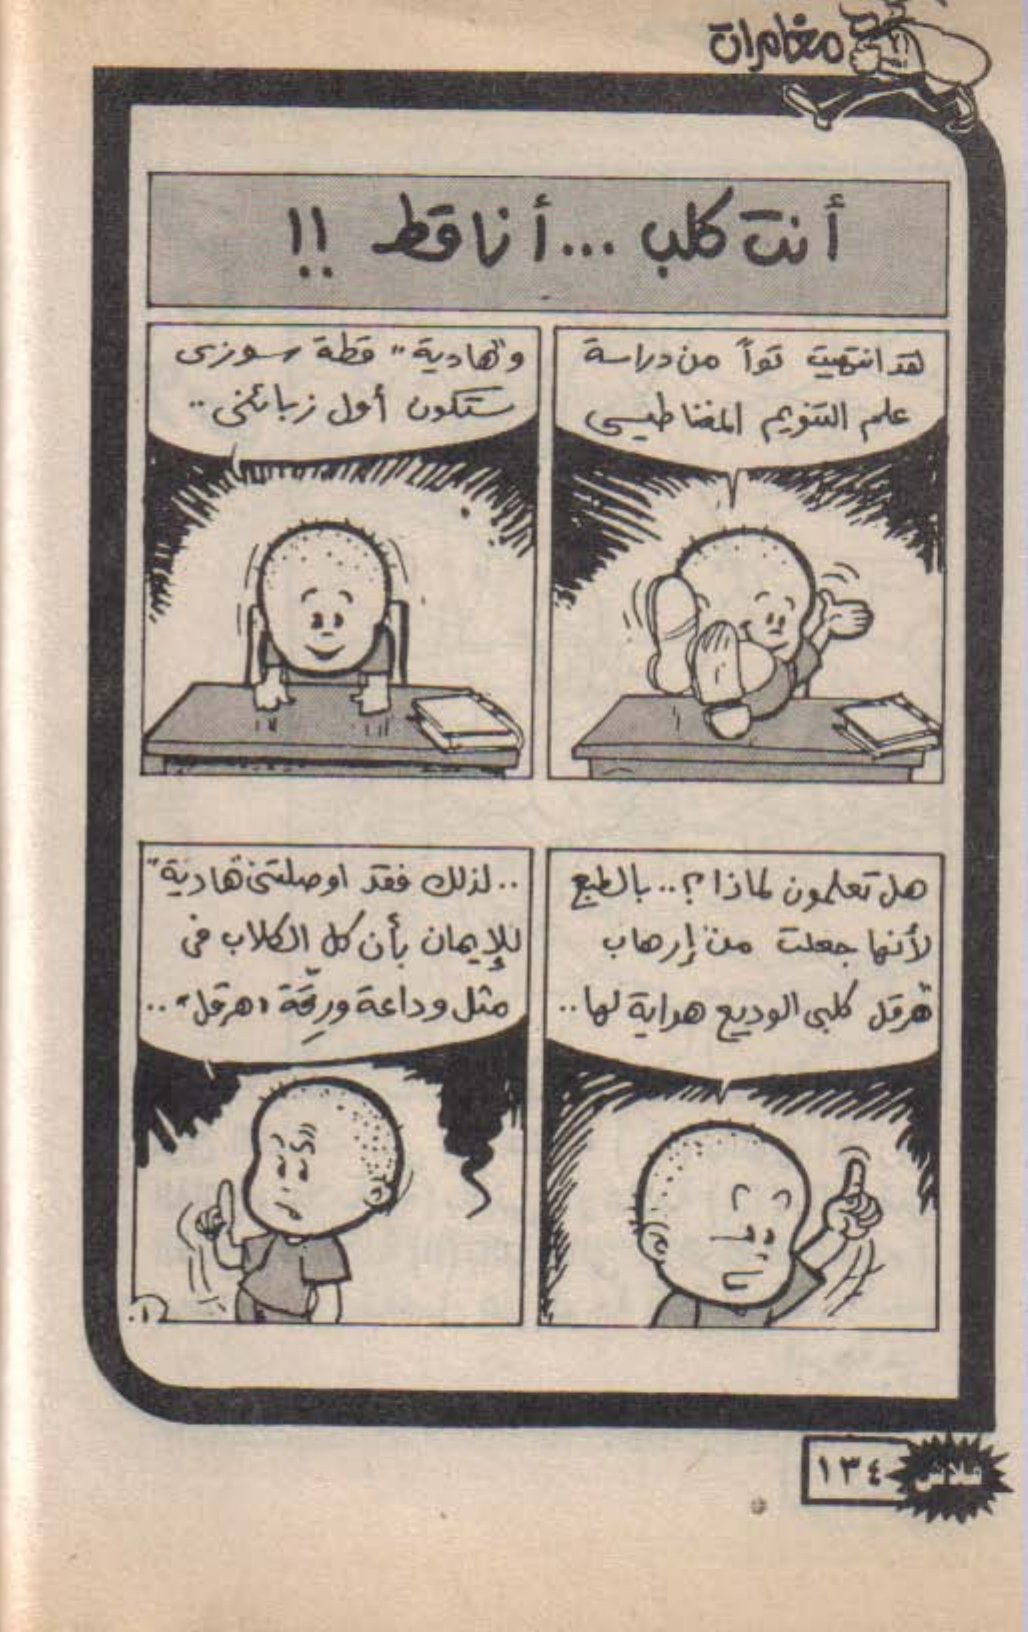 مغامرات
أنت كلب ... أنا قط !!
لقد انتهيت تواً من دراسة
علم التنويم المغناطيسى
و"هادية" قطة سوزى
ستكون أول زبائنى ..
هل تعلمون لماذا ؟.. بالطبع
لأنها جعلت من إرهاب
"هرقل كلبى الوديع هواية لها ..
.. لذلك فقد اوصلتنى "هادية"
للإيمان بأن كل الكلاب فى
مثل وداعة ورقَّة "هرقل" ..
١٣٤
فلاش